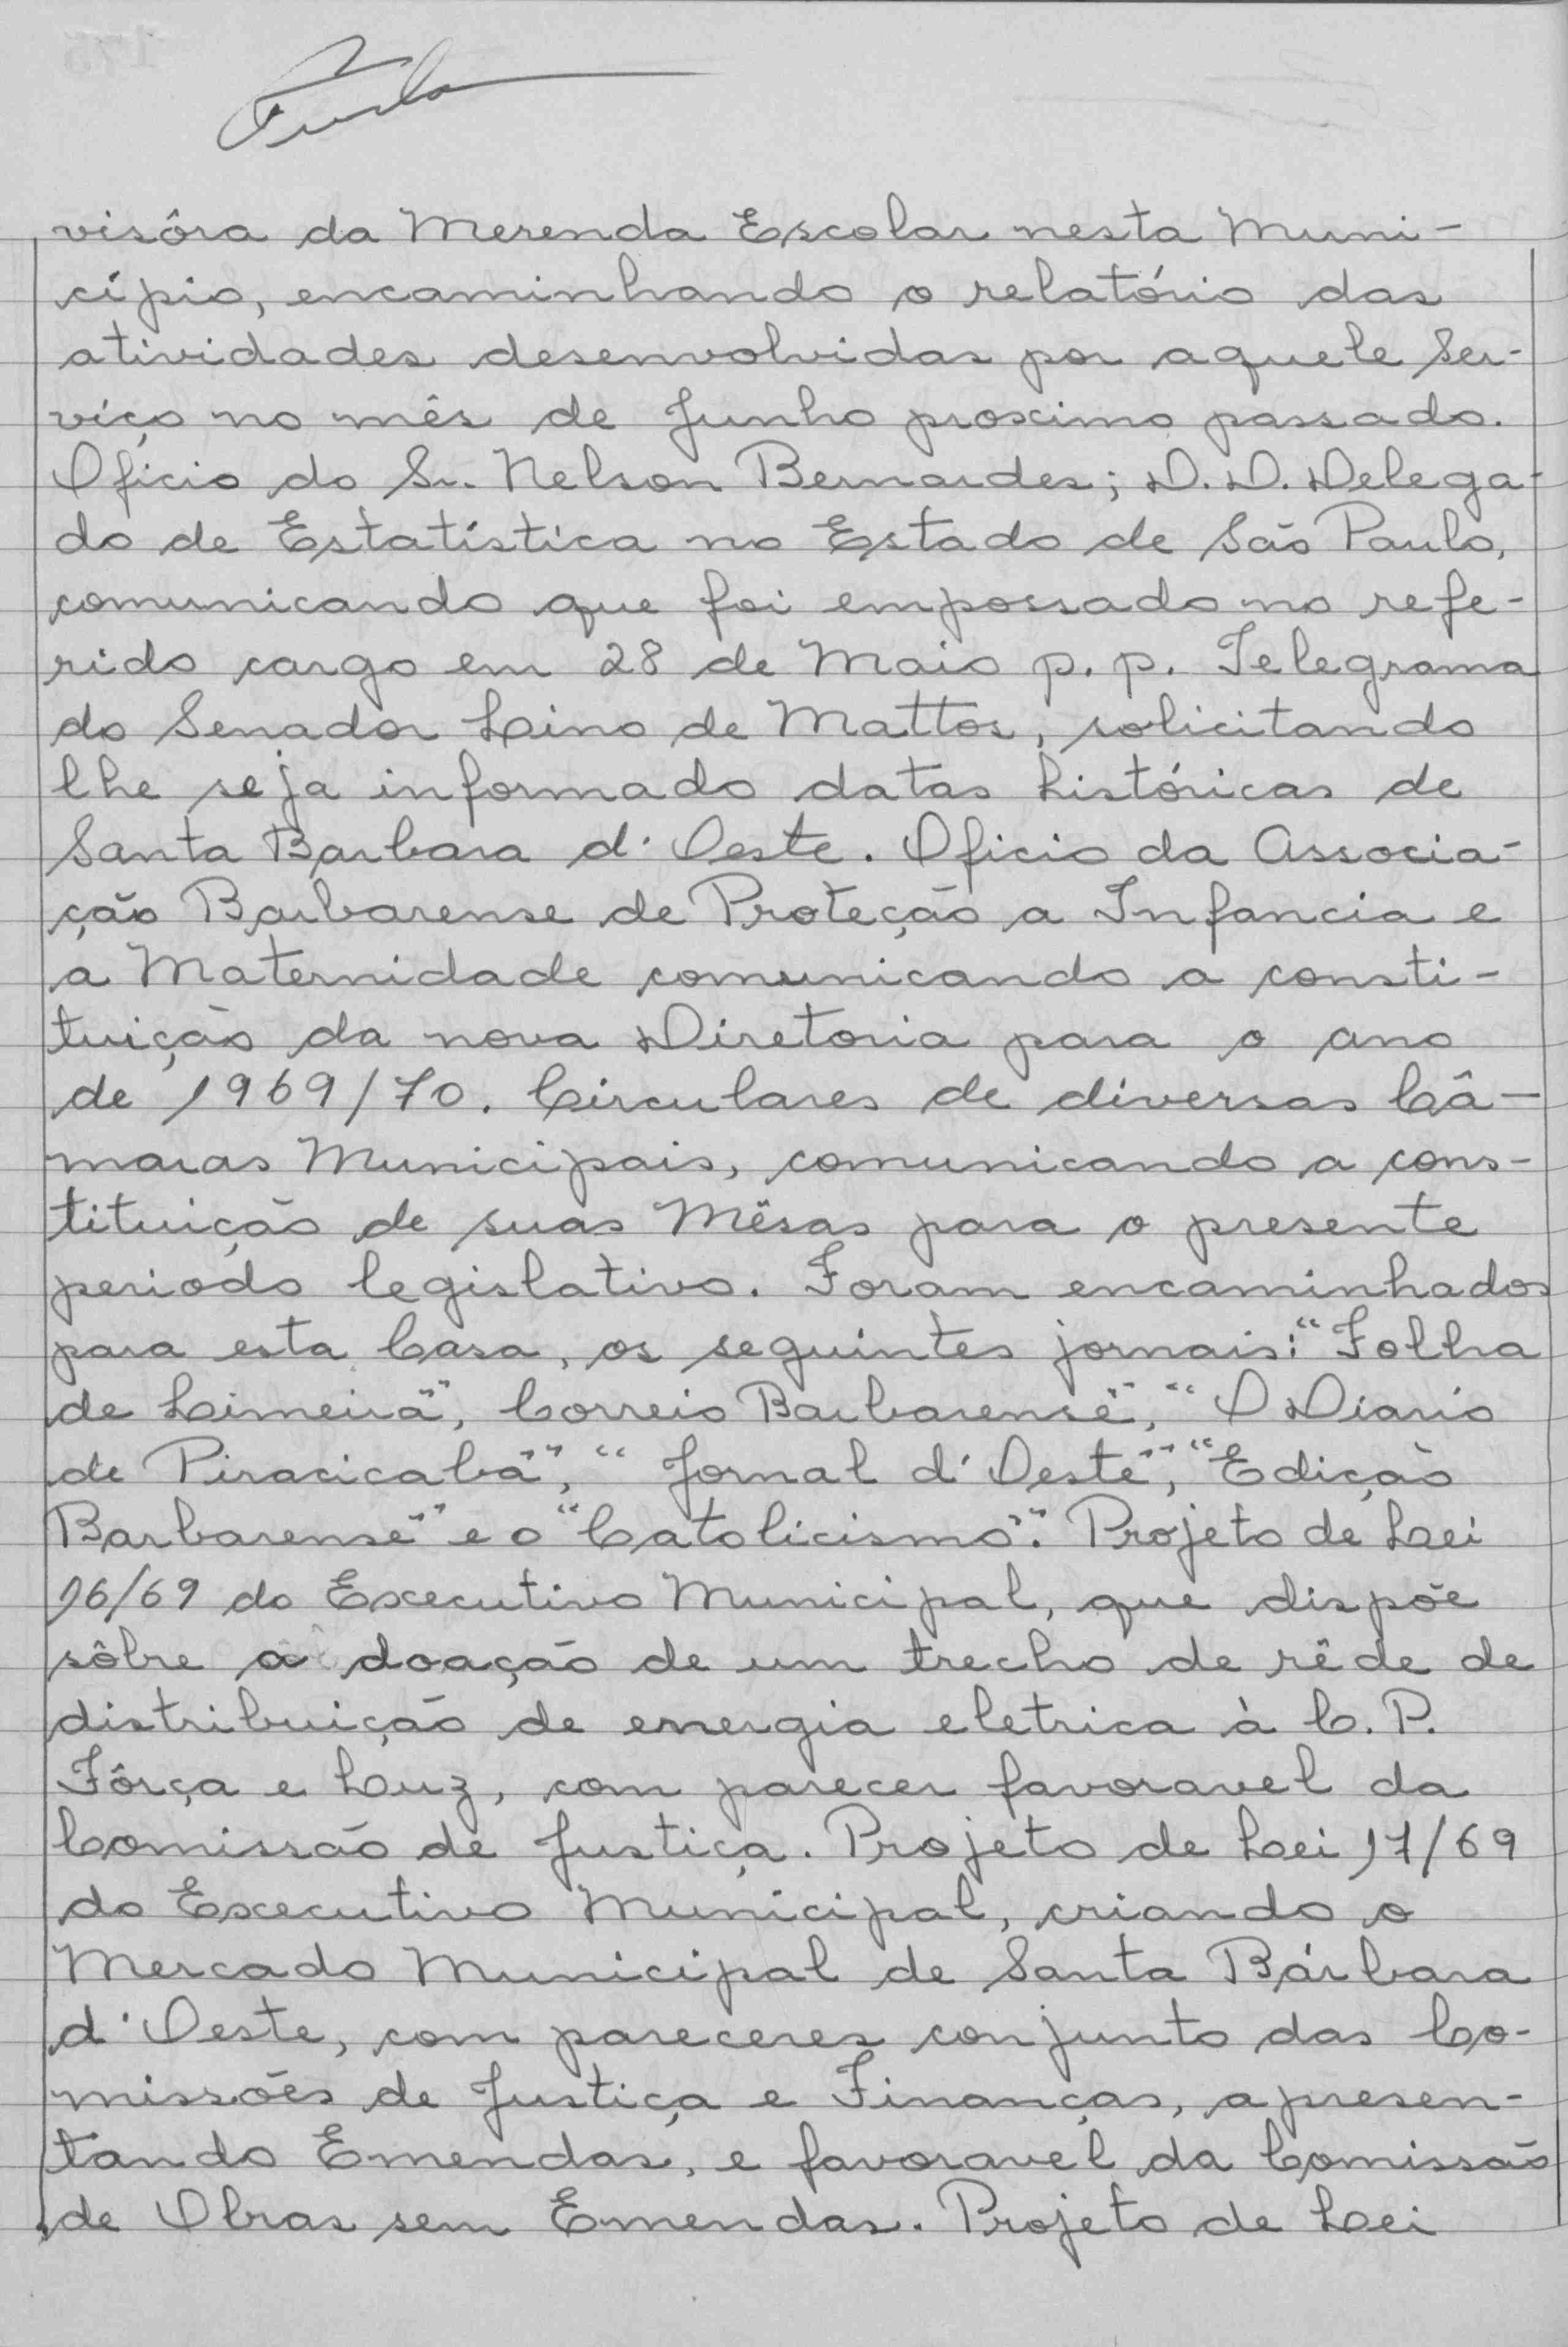 visôra da Merenda Escolar nesta Muni-
cípio, encaminhando o relatório das
atividades desenvolvidas por aquele Ser-
viço no mês de Junho proximo passado.
Oficio do Sr. Nelson Bernardes; D. D. Delega-
do de Estatística no Estado de São Paulo,
comunicando que foi empossado no refe-
rido cargo em 28 de Maio p. p. Telegrama
do Senador Lino de Mattos, solicitando
lhe seja informado datas históricas de
Santa Barbara d'Oeste. Oficio da Associa-
ção Barbarense de Proteção a Infancia e
a Maternidade comunicando a consti-
tuição da nova Diretoria para o ano
de 1969/70. Circulares de diversas Câ-
maras Municipais, comunicando a cons-
tituição de suas Mêsas para o presente
periodo legislativo. Foram encaminhados
para esta Casa, os seguintes jornais: "Folha
de Limeira", Correio Barbarense", "O Diario
de Piracicaba", "Jornal d'Oeste", "Edição
Barbarense" e o "Catolicismo". Projeto de Lei
16/69 do Executivo Municipal, que dispõe
sôbre a doação de um trecho de rêde de
distribuição de energia eletrica à C. P.
Fôrça e Luz, com parecer favoravel da
Comissão de Justiça. Projeto de Lei 17/69
do Executivo Municipal, criando o
Mercado Municipal de Santa Bárbara
d'Oeste, com pareceres conjunto das Co-
missões de Justiça e Finanças, apresen-
tando Emendas, e favoravel da Comissão
de Obras sem Emendas. Projeto de Lei